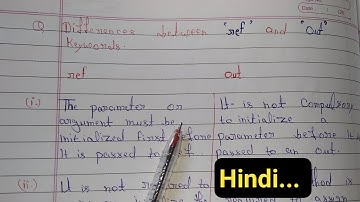 Q Differences between "ref" and "out"
Keywords.
ref out
(i.) The parameter or It is not compulsory
argument must be to initialize a
initialized first before parameter before it
it is passed to ref. passed to an out.
(ii.) It is not required to
Hindi...